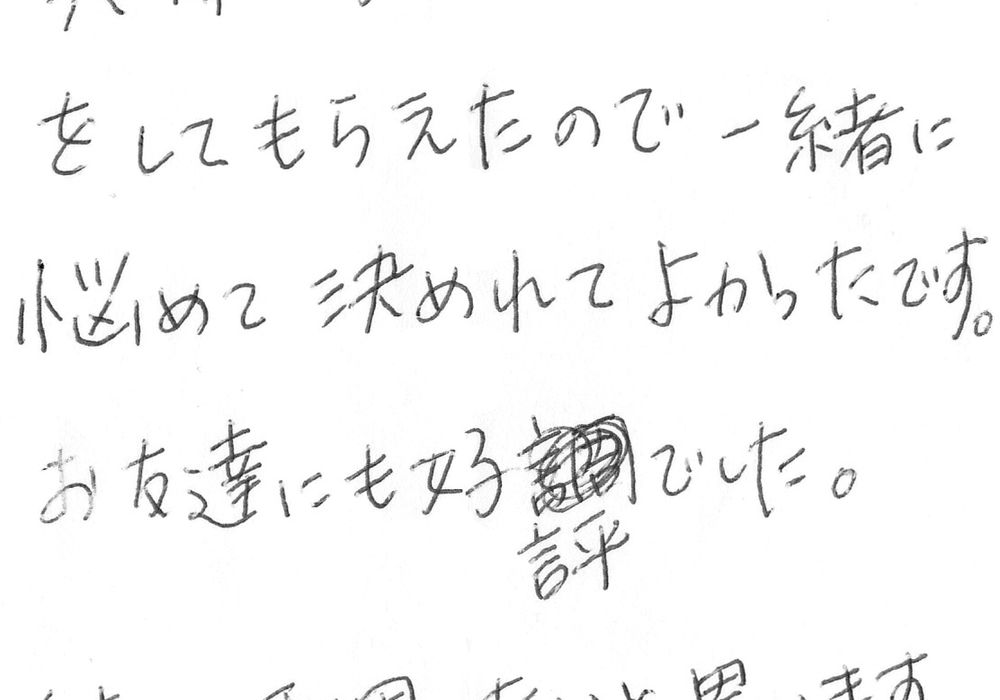 をしてもらえたので一緒に
悩めて決めれてよかったです。
お友達にも好評でした。
と思います